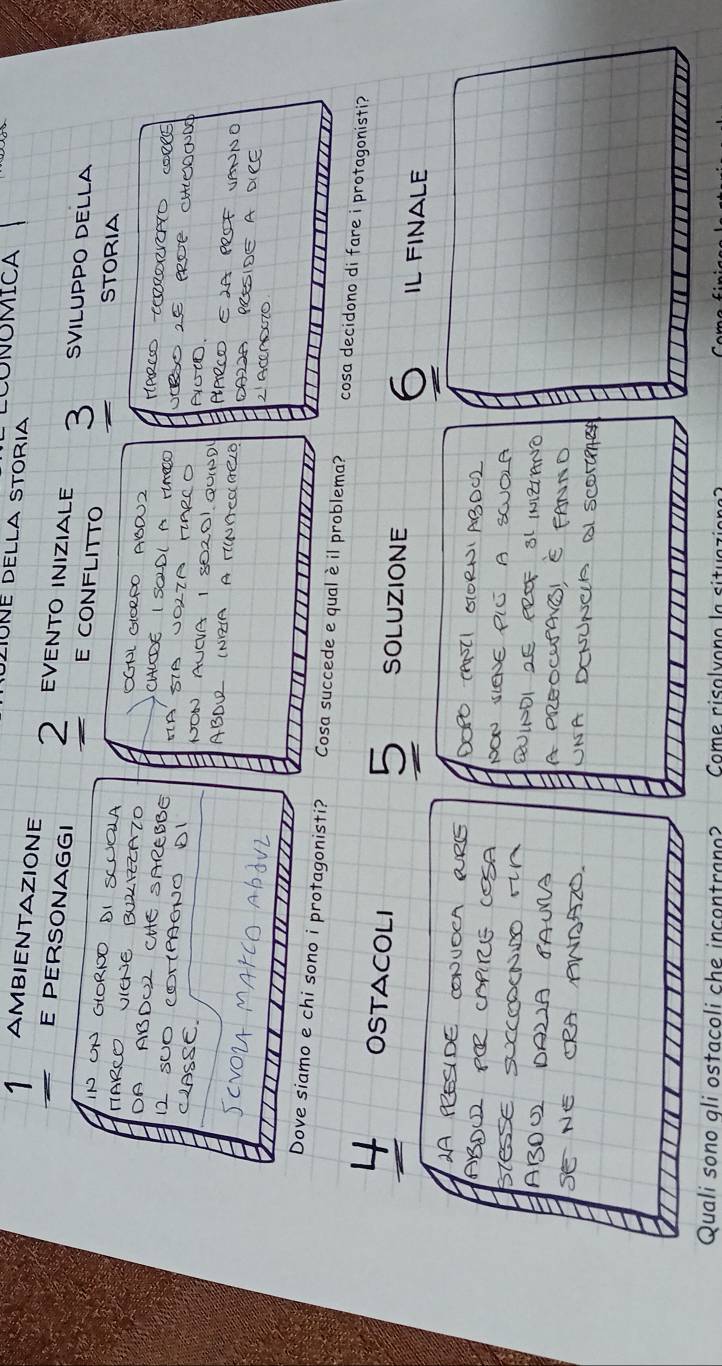 DELLA STORIA
1 AMBIENTAZIONE
E PERSONAGGI
IN UN GIORNO DI SCUOLA
MARCO VIENE BULLIZZATO
DA ABDUL CHE SAREBBE
IL SUO COMPAGNO DI
CLASSE.
SCUOLA MARCO Abdul
Dove siamo e chi sono i protagonisti?
2 EVENTO INIZIALE
E CONFLITTO
OGNI GIORNO ABDUL
CHIEDE I SOLDI A MARCO
MA STA VOLTA MARCO
NON AVEVA I SOLDI. QUINDI
ABDUL INIZIA A MINACCIARLO
Cosa succede e qual è il problema?
3 SVILUPPO DELLA
STORIA
MARCO CORRE
VERSO LE PROF CHIEDENDO
AIUTO.
MARCO E LA PROF VANNO
DALLA PRESIDE A DIRE
L'ACCADUTO.
cosa decidono di fare i protagonisti?
4 OSTACOLI
LA PRESIDE CONVOCA PURE
ABDUL PER CAPIRE COSA
STESSE SUCCEDENDO MA
ABDUL DALLA PAURA
SE NE ERA ANDATO.
Quali sono gli ostacoli che incontrano?
5 SOLUZIONE
DOPO TANTI GIORNI ABDUL
NON VIENE PIÙ A SCUOLA
QUINDI LE PROF SI INIZIANO
A PREOCUPARSI, E FANNO
UNA DENUNCIA DI SCOMPARSA
Come risolvono la situazione?
6 IL FINALE